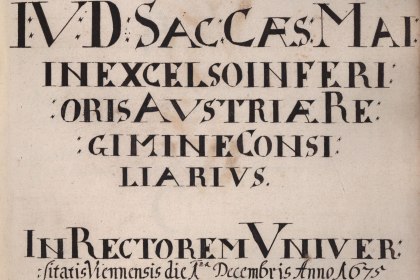 IV:D: SAC: CÆS: MAI:
IN EXCELSO INFERI
:ORIS AVSTRIÆ RE:
:GIMINE CONSI:
LIARIVS.
IN RECTOREM VNIVER:
:sitatis Viennensis die 1.ma Decembris Anno 1675